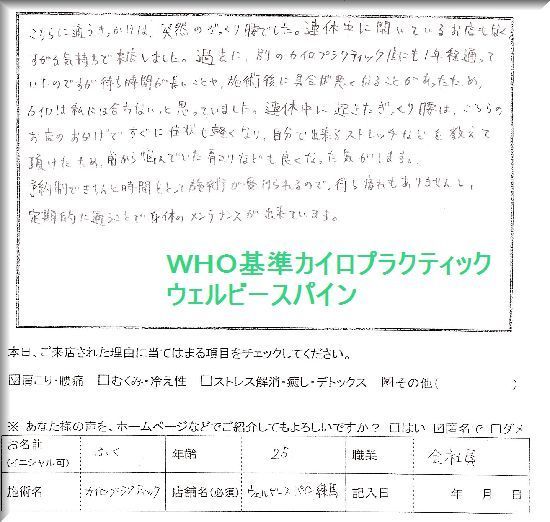 こちらに通うきっかけは、突然のぎっくり腰でした。連休中に開いているお店もなく
すがる気持ちで来店しました。過去に、別のカイロプラクティック店にも1年程通って
いたのですが待ち時間が長いことや、施術後に具合が悪くなることがあったため、
カイロは私には合わないと思っていました。連休中に起きたぎっくり腰は、こちらの
お店のおかげですぐに症状も軽くなり、自分で出来るストレッチなどを教えて
頂けたため、前から悩んでいた肩こりなども良くなった気がします。
予約制できちんと時間をとって施術が受けられるので、待ち疲れもありませんし、
定期的に通うことで身体のメンテナンスが出来ています。
WHO基準カイロプラクティック
ウェルビースパイン
本日、ご来店された理由に当てはまる項目をチェックしてください。
☑肩こり・腰痛 □むくみ・冷え性 □ストレス解消・癒し・デトックス ☑その他( )
※ あなた様の声を、ホームページなどでご紹介してもよろしいですか? □はい ☑匿名で □ダメ
お名前 (イニシャル可) 年齢 25 職業 会社員
施術名 カイロプラクティック 店舗名(必須) 練馬 記入日 年 月 日